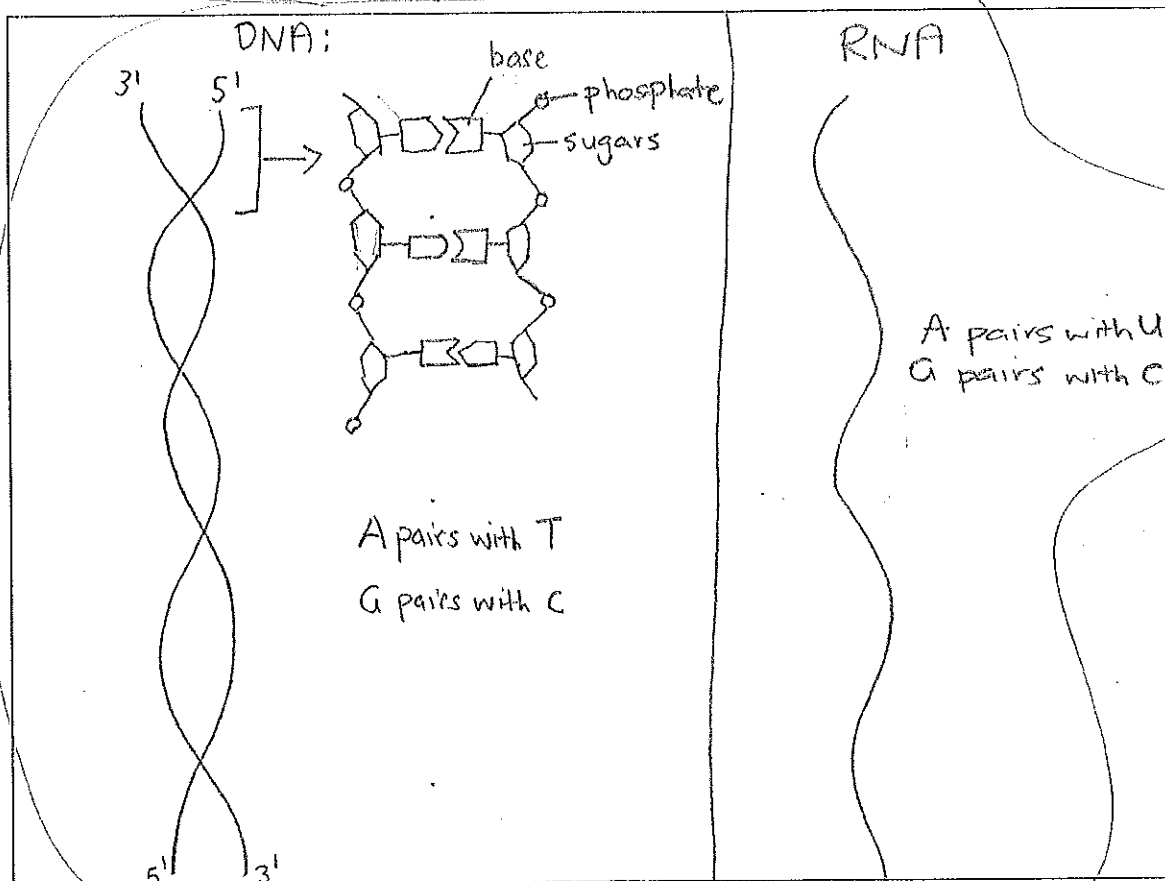 DNA:
RNA
3' 5'
base
phosphate
sugars
A pairs with U
G pairs with C
A pairs with T
G pairs with C
5' 3'